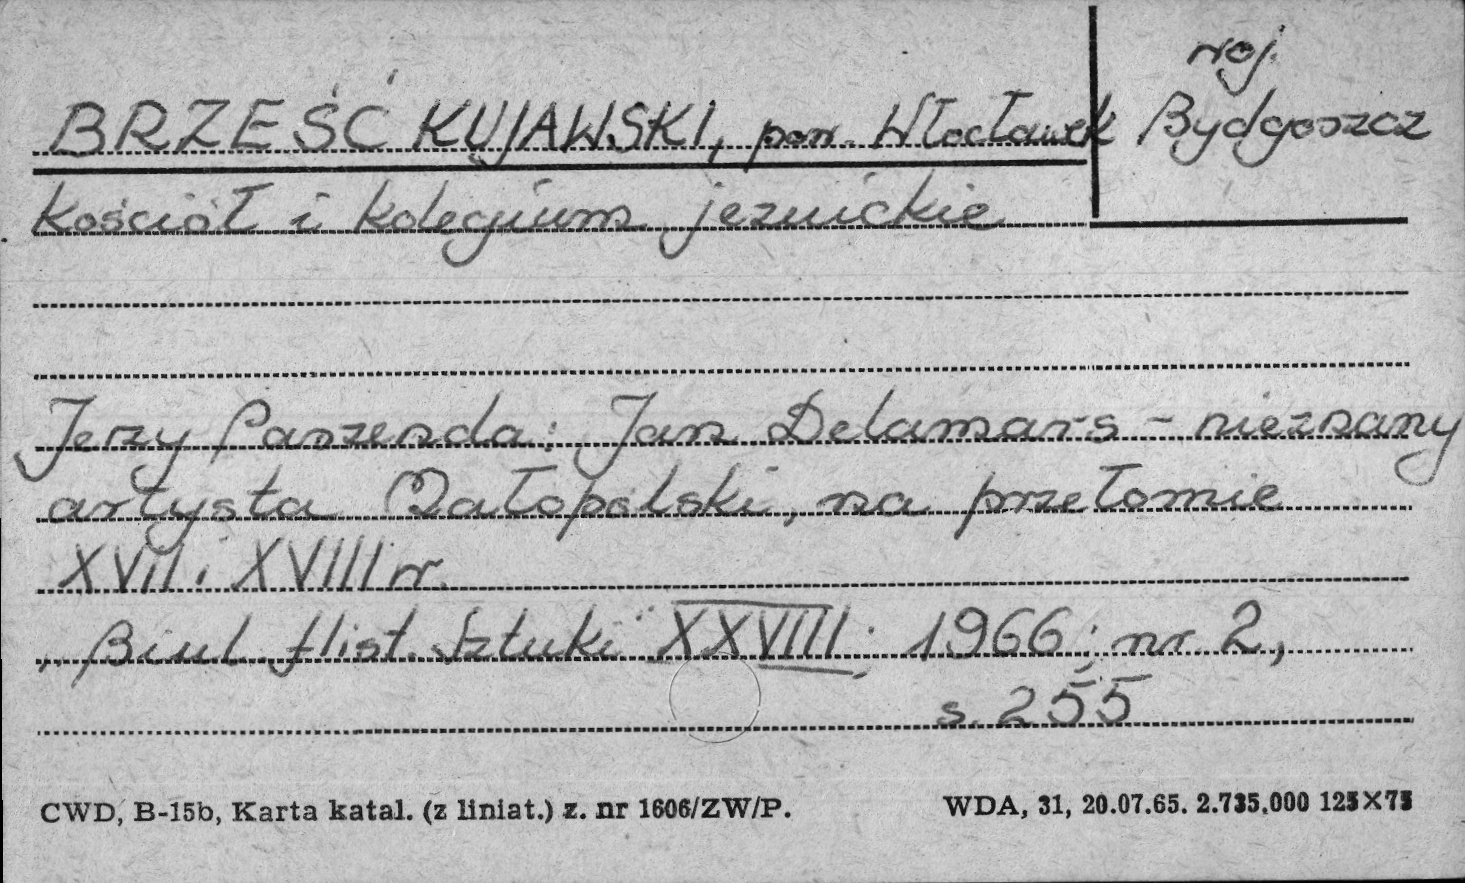 woj.
BRZEŚĆ KUJAWSKI, pow. Włocławek Bydgoszcz
Kościół i kolegium jezuickie
Jerzy Paszenda: Jan Delamars - nieznany
artysta Małopolski, na przełomie
XVII i XVIII w.
„Biul. Hist. Sztuki" XXVIII: 1966; nr 2,
s. 255
CWD, B-15b, Karta katal. (z liniat.) z. nr 1606/ZW/P. WDA, 31, 20.07.65. 2.735.000 125×75